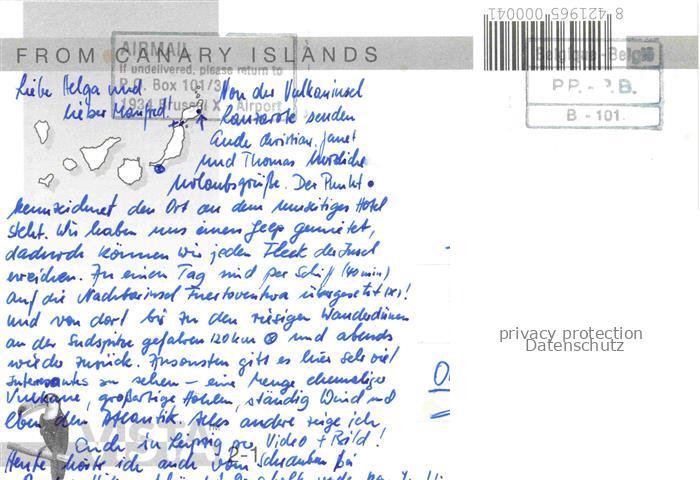 8 421965 000041
FROM CANARY ISLANDS
AIRMAIL
If undelivered, please return to
P.O. Box 101/3
1934 Brussel X Airport
Belgique-België
P.P. - P.B.
B - 101
Liebe Helga und
lieber Manfred,
Von der Vulkaninsel
Lanzarote senden
Euch Christian, Janet
und Thomas herzliche
Urlaubsgrüße. Der Punkt •
kennzeichnet den Ort an dem unser Hotel
steht. Wir haben uns einen Jeep gemietet,
dadurch können wir jeden Fleck der Insel
erreichen. An einem Tag sind per Schiff (40 min)
auf die Nachbarinsel Fuerteventura übergesetzt (x)!
und von dort bis zu den riesigen Wanderdünen
an der Südspitze gefahren 120 km ⊗ und abends
wieder zurück. Ansonsten gibt es hier sehr viel
Interessantes zu sehen – eine Menge ehemalige
Vulkane, großartige Höhlen, ständig Wind und
eben den Atlantik. Alles andere zeige ich
Euch in Leipzig per Video + Bild!
Heute hörte ich auch vom
privacy protection
Datenschutz
VISTA
2-1